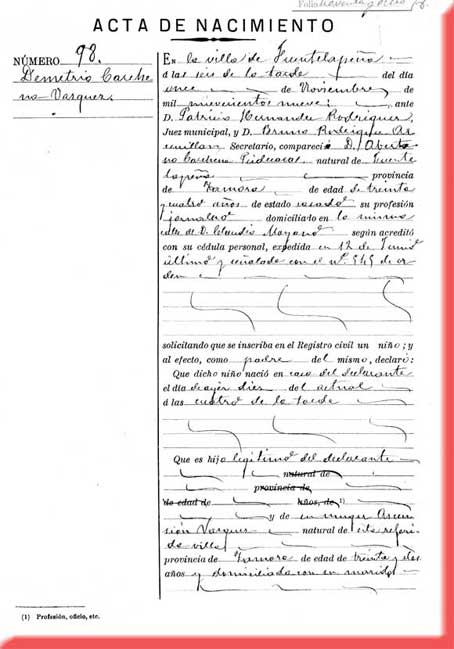 ACTA DE NACIMIENTO
NÚMERO 98.
Demetrio Carche
na Vasquez.
En la villa de Fuentelapeña
á las seis de la tarde del día
once de Noviembre de
mil novecientos nueve; ante
D. Patricio Hernandez Rodriguez,
Juez municipal, y D. Bruno Rodriguez
Secretario, compareció D.
no Carchena natural de Fuente
lapeña provincia
de Zamora de edad de treinta
y cuatro años de estado casado su profesión
jornalero domiciliado en la misma
calle de D. Claudio Moyano según acreditó
con su cédula personal, expedida en 12 de Junio
último y señalada con el nº. 545 de or
den
solicitando que se inscriba en el Registro civil un niño; y
al efecto, como padre del mismo, declaró:
Que dicho niño nació en casa del declarante
el dia de ayer diez del actual
á las cuatro de la tarde
Que es hijo legitimo del declarante
natural de
provincia de
de edad de años, de 1)
y de su muger Ascen
sión Vasquez natural de esta referi
da villa
provincia de Zamora de edad de treinta y dos
años y domiciliada con su marido
(1) Profesión, oficio, etc.